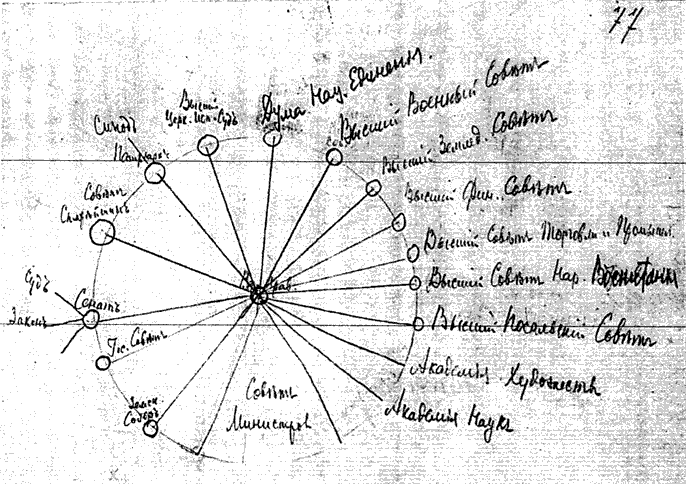 77
Дума Нац. Единенія
Высшій Военный Совѣтъ
Высшій
Церк. Исп. Судъ
Синодъ
Патріархъ
Высшій Землед. Совѣтъ
Высшій Фин. Совѣтъ
Совѣтъ
Высшій Совѣтъ Торговли и Промышл.
Высшій Совѣтъ Нар. Воспитанія
Судъ
Сенатъ
Законъ
Высшій Совѣтъ
Гос. Совѣтъ
Академія Художествъ
Земск.
Соборъ
Совѣтъ
Министровъ
Академія Наукъ